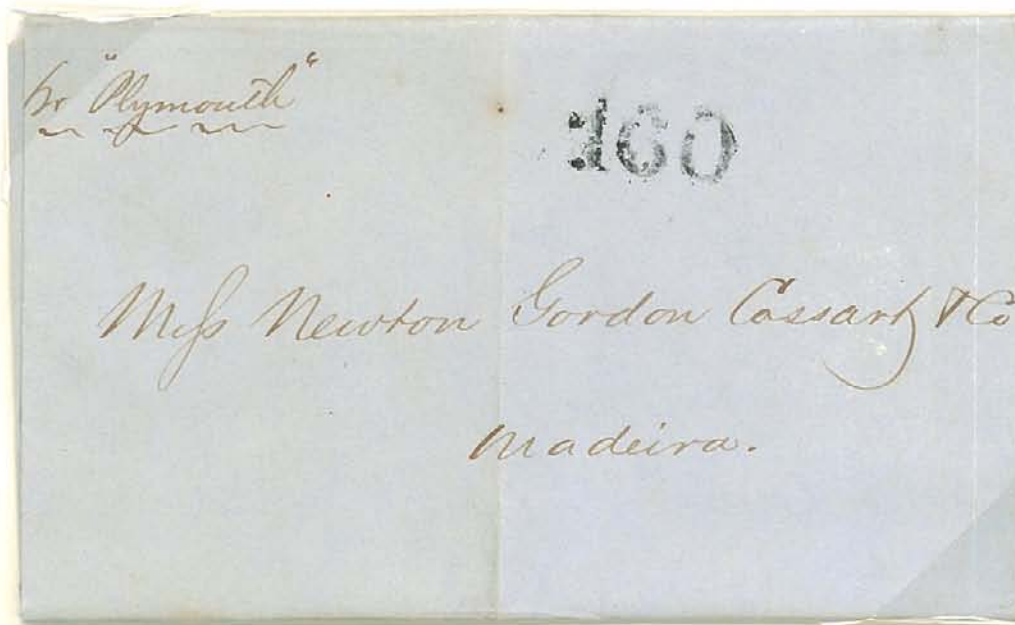 pr "Plymouth"
160
Mess Newton Gordon Cossart & Co
Madeira.